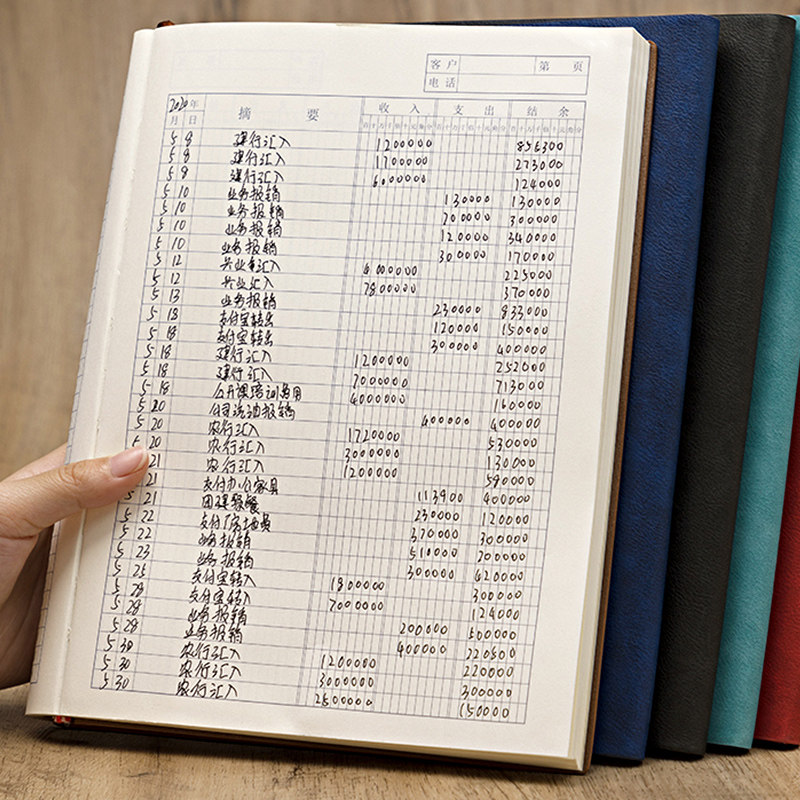 客户 第 页
电话
2020年 摘 要 收 入 支 出 结 余
月 日 百十万千百十元角分 百十万千百十元角分 百十万千百十元角分
5 8 建行汇入 1200000 856300
5 8 建行汇入 1700000 273000
5 8 建行汇入 6000000 124000
5 10 业务报销 130000 130000
5 10 业务报销 200000 300000
5 10 业务报销 120000 340000
5 10 业务报销 300000 170000
5 12 兴业汇入 6000000 225000
5 12 兴业汇入 7800000 370000
5 13 业务报销 230000 833000
5 18 支付宝转出 120000 150000
5 18 支付宝转出 300000 400000
5 18 建行汇入 1200000 252000
5 18 建行汇入 7000000 713000
5 18 公开课培训费用 4000000 160000
5 20 公司 报销 400000 400000
5 20 农行汇入 1720000 530000
5 20 农行汇入 3000000 130000
21 农行汇入 1200000 590000
21 支付办公家具 113900 400000
5 21 团建聚餐 230000 120000
5 22 支付 370000 300000
5 22 业务报销 510000 700000
5 23 业务报销 300000 420000
5 25 支付宝转入 1800000 300000
5 28 支付宝转入 7000000 124000
5 28 业务报销 200000 500000
5 28 业务报销 400000 220500
5 30 农行汇入 1200000 220000
5 30 农行汇入 3000000 300000
5 30 农行汇入 2800000 150000